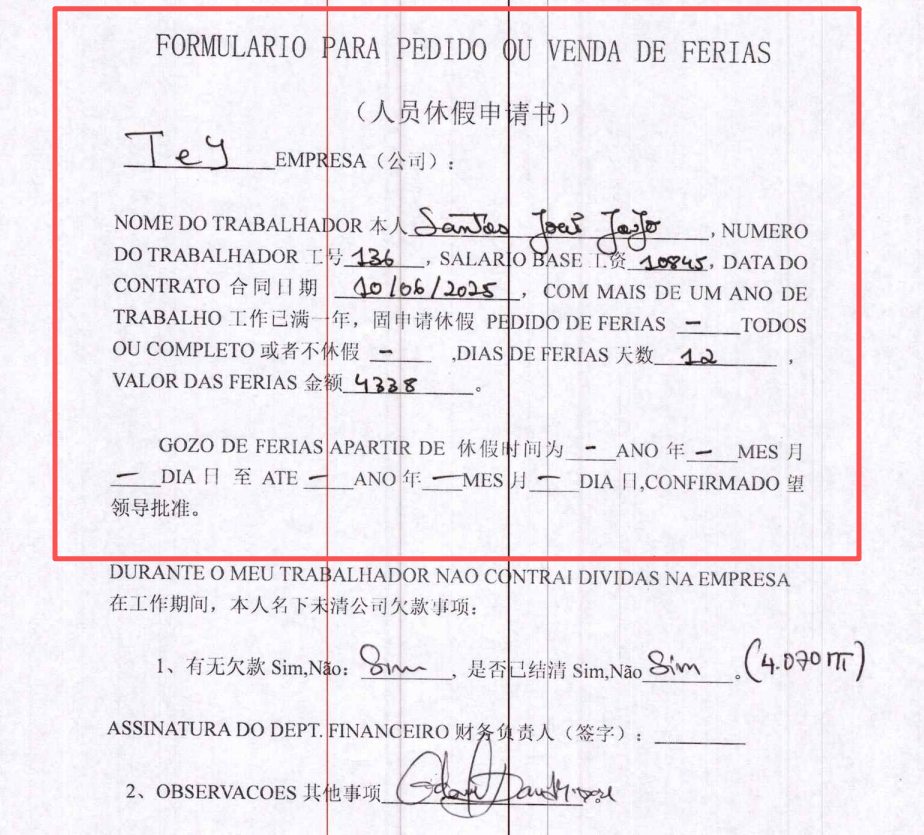 FORMULARIO PARA PEDIDO OU VENDA DE FERIAS
（人员休假申请书）
Tey EMPRESA（公司）:
NOME DO TRABALHADOR 本人 Santos José, NUMERO
DO TRABALHADOR 工号 136, SALARIO BASE 工资 10845, DATA DO
CONTRATO 合同日期 10/06/2025, COM MAIS DE UM ANO DE
TRABALHO 工作已满一年，固申请休假 PEDIDO DE FERIAS — TODOS
OU COMPLETO 或者不休假 — ,DIAS DE FERIAS 天数 12 ,
VALOR DAS FERIAS 金额 4338。
GOZO DE FERIAS APARTIR DE 休假时间为 — ANO 年 — MES 月
— DIA 日 至 ATE — ANO 年 — MES 月 — DIA 日,CONFIRMADO 望
领导批准。
DURANTE O MEU TRABALHADOR NAO CONTRAI DIVIDAS NA EMPRESA
在工作期间，本人名下未清公司欠款事项：
1、有无欠款 Sim,Não: Sim, 是否已结清 Sim,Não Sim。(4.070 MT)
ASSINATURA DO DEPT. FINANCEIRO 财务负责人（签字）:
2、OBSERVACOES 其他事项